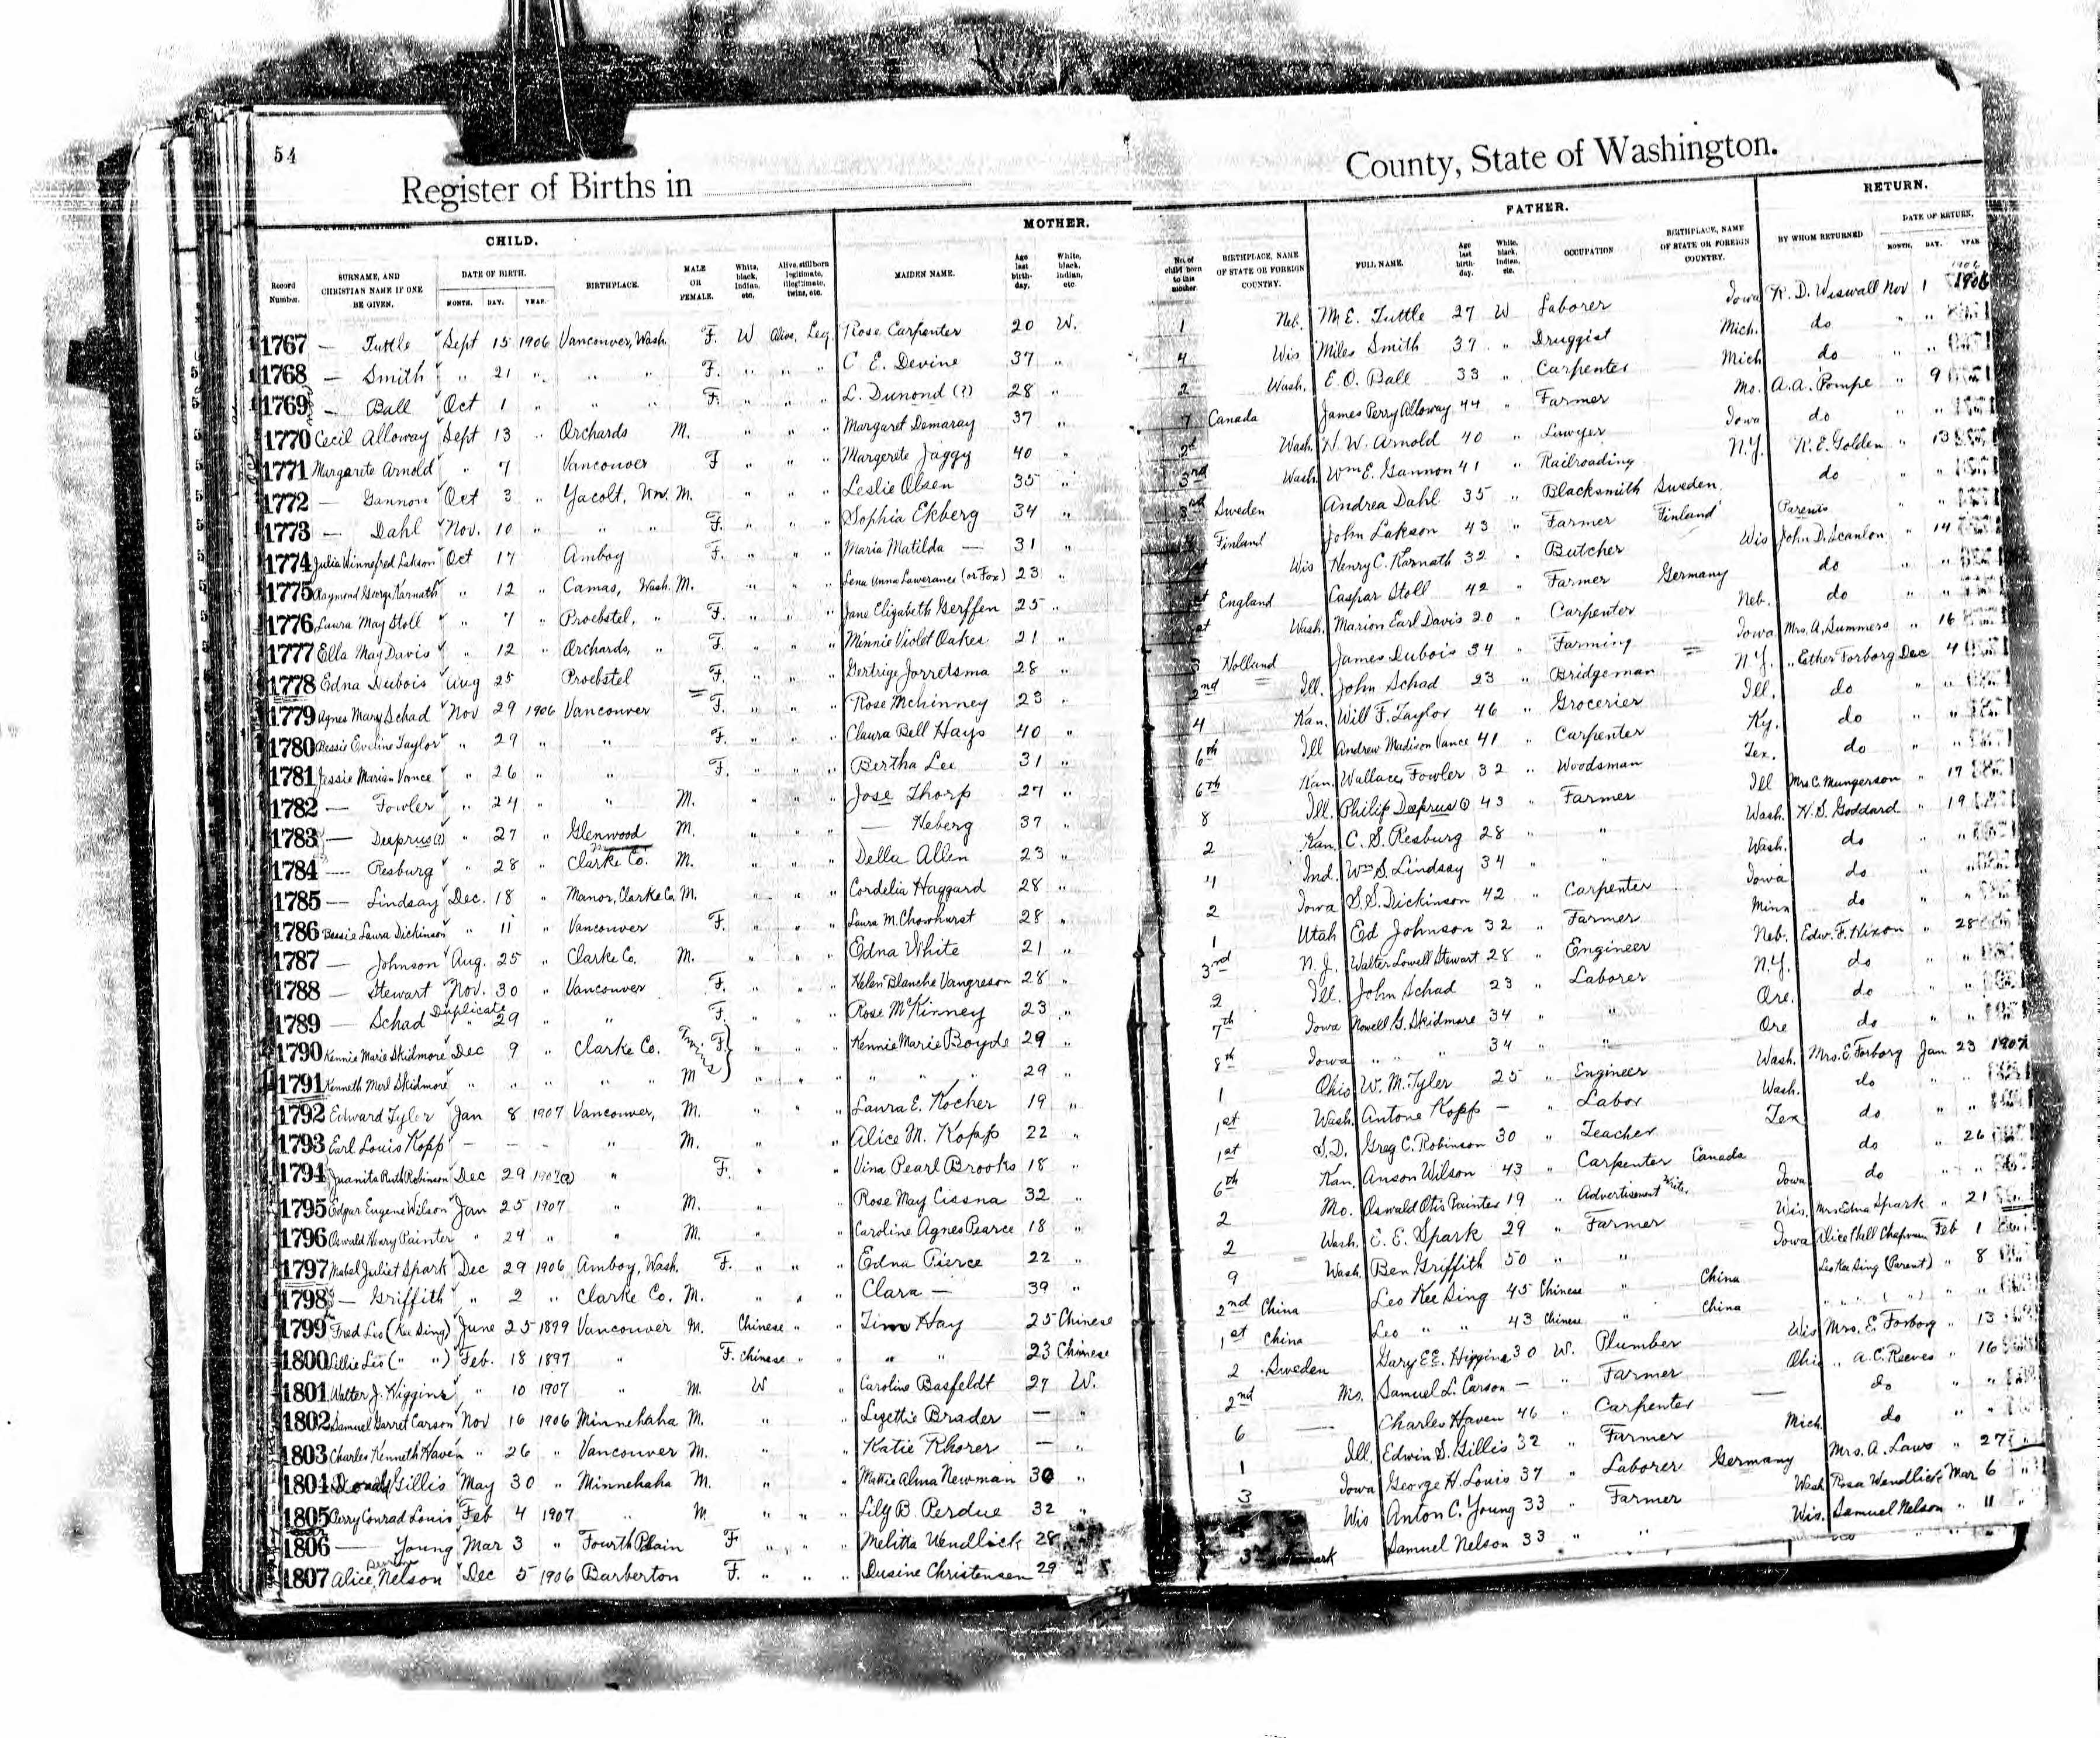 54
Register of Births in
County, State of Washington.
CHILD.
MOTHER.
FATHER.
RETURN.
Record Number.
SURNAME, AND CHRISTIAN NAME IF ONE BE GIVEN.
DATE OF BIRTH.
MONTH. DAY. YEAR.
BIRTHPLACE.
MALE OR FEMALE.
White, black, Indian, etc.
Alive, stillborn legitimate, illegitimate, twins, etc.
MAIDEN NAME.
Age last birth-day.
White, black, Indian, etc.
No. of child born to this mother.
BIRTHPLACE, NAME OF STATE OR FOREIGN COUNTRY.
FULL NAME.
Age last birth-day.
White, black, Indian, etc.
OCCUPATION
BIRTHPLACE, NAME OF STATE OR FOREIGN COUNTRY.
BY WHOM RETURNED
DATE OF RETURN.
MONTH. DAY. YEAR
1906
1767 — Tuttle Sept 15 1906 Vancouver, Wash. F. W Alive, Leg. Rose Carpenter 20 W. 1 Neb. M. E. Tuttle 27 W Laborer Iowa R. D. Wiswall Nov 1 1906
1768 — Smith " 21 " " " F. " " " C. E. Devine 37 " 4 Wis Miles Smith 39 " Druggist Mich. do " "
1769 — Ball Oct 1 " " " F. " " " L. Dunond (?) 28 " 2 Wash. E. O. Ball 33 " Carpenter Mich do " "
1770 Cecil Alloway Sept 13 " Orchards M. " " " Margaret Demaray 37 " 7 Canada James Perry Alloway 44 " Farmer Mo. A. A. Pompe " 9
1771 Margarete Arnold " 7 Vancouver F " " " Margerete Jaggy 40 " 2d Wash. H. W. Arnold 40 " Lawyer Iowa do " "
1772 — Gannon Oct 3 " Yacolt, Wn. M. " " " Leslie Olsen 35 " 3rd Wash. Wm E. Gannon 41 " Railroading N.Y. R. E. Golden " 13
1773 — Dahl Nov. 10 " " " F. " " " Sophia Ekberg 34 " 3rd Sweden Andrea Dahl 35 " Blacksmith Sweden do " "
1774 Julia Winnefred Lakson Oct 17 Amboy F. " " " Maria Matilda — 31 " Finland John Lakson 43 " Farmer Finland Parents " "
1775 Raymond George Karnath " 12 " Camas, Wash. M. " " " Lena Anna Lawerance (or Fox) 23 " Wis Henry C. Karnath 32 " Butcher Wis John D. Scanlon " 14
1776 Laura May Stoll " 7 " Proebstel, " F. " " " Jane Elizabeth Gerffen 25 " England Caspar Stoll 42 " Farmer Germany do " "
1777 Ella May Davis " 12 " Orchards, " F. " " " Minnie Violet Oakes 21 " Wash. Marion Earl Davis 20 " Carpenter Neb. do " "
1778 Edna Dubois Aug 25 Proebstel F. " " " Gertrige Jorretsma 28 " 3 Holland James Dubois 34 " Farming Iowa Mrs. A. Summers " 16
1779 Agnes Mary Schad Nov 29 1906 Vancouver F. " " " Rose Mckinney 23 " 2nd Ill. John Schad 23 " Bridgeman N.Y. " Esther Forborg Dec 4
1780 Bessie Eveline Taylor " 29 " " F. " " " Claura Bell Hays 40 " 4 Kan. Will F. Taylor 46 " Grocerier Ill. do " "
1781 Jessie Marian Vance " 26 " " F. " " " Bertha Lee 31 " 6th Ill Andrew Madison Vance 41 " Carpenter Ky. do " "
1782 — Fowler " 24 " " M. " " " Jose Thorp 27 " 6th Kan. Wallace Fowler 32 " Woodsman Tex. do " "
1783 — Deeprus (?) " 27 " Glenwood M. " " " — Heberg 37 " 8 Ill. Philip Deeprus (?) 43 " Farmer Ill Mrs C. Mungerson " 17
1784 — Resburg " 28 " Clarke Co. M. " " " Della Allen 23 " 2 Kan. C. S. Resburg 28 " " Wash. H. S. Goddard " 19
1785 — Lindsay Dec. 18 " Manor, Clarke Co. M. " " " Cordelia Haggard 28 " 4 Ind. Wm S. Lindsay 34 " " Wash. do " "
1786 Bessie Laura Dickinson " 11 " Vancouver F. " " " Laura M. Chowhurst 28 " 2 Iowa S. S. Dickinson 42 " Carpenter Iowa do " "
1787 — Johnson Aug. 25 " Clarke Co. M. " " " Edna White 21 " 1 Utah Ed Johnson 32 " Farmer Minn do " "
1788 — Stewart Nov. 30 " Vancouver F. " " " Helen Blanche Vangreson 28 " 3rd N. J. Walter Lowell Stewart 28 " Engineer Neb. Edw. F. Hixon " 28
1789 — Schad Duplicate " 29 " " F. " " " Rose McKinney 23 " 2 Ill. John Schad 23 " Laborer N.Y. do " "
1790 Kennie Marie Skidmore Dec 9 " Clarke Co. Twins F. " " " Kennie Marie Boyde 29 " 7th Iowa Nowell G. Skidmore 34 " " Ore. do " "
1791 Kenneth Merl Skidmore " " " " " M " " " " " " 29 " 8th Iowa " " " 34 " " Ore do " "
1792 Edward Tyler Jan 8 1907 Vancouver, M. " " " Laura E. Kocher 19 " 1 Ohio W. M. Tyler 25 " Engineer Wash. Mrs. E Forborg Jan. 23 1907
1793 Earl Louis Kopp — — — " M. " " Alice M. Kopp 22 " 1st Wash. Antone Kopp — " Labor Wash. do " "
1794 Juanita Ruth Robinson Dec 29 1907(?) " F. " " Vina Pearl Brooks 18 " 1st S.D. Greg C. Robinson 30 " Teacher Tex do " "
1795 Edgar Eugene Wilson Jan 25 1907 " M. " " Rose May Cissna 32 " 6th Kan. Anson Wilson 43 " Carpenter Canada do " 26
1796 Oswald Henry Painter " 24 " " M. " " Caroline Agnes Pearce 18 " 2 Mo. Oswald Otis Painter 19 " Advertisement Writer Iowa do " "
1797 Mabel Juliet Spark Dec 29 1906 Amboy, Wash. F. " " " Edna Pierce 22 " 2 Wash. E. E. Spark 29 " Farmer Wis. Mrs Edna Spark " 21
1798 — Griffith " 2 " Clarke Co. M. " " " Clara — 39 " 9 Wash. Ben Griffith 50 " " Iowa Alice Hall Chapman Feb 1
1799 Fred Leo (Kee Sing) June 25 1899 Vancouver M. Chinese " " Tim Hay 25 Chinese 2nd China Leo Kee Sing 45 Chinese " China Leo Kee Sing (Parent) " 8
1800 Lillie Leo (" ") Feb. 18 1897 " F. Chinese " " " " 23 Chinese 1st China Leo " " 43 Chinese " China " " " ( " ) " "
1801 Walter J. Higgins " 10 1907 " M. W " Caroline Basfeldt 27 W. 2 Sweden Gary E. E. Higgins 30 W. Plumber Wis Mrs. E. Forborg " 13
1802 Samuel Garret Carson Nov 16 1906 Minnehaha M. " " Lizettie Brader — " 2nd Mo. Samuel L. Carson — " Farmer Ohio " A. C. Reeves " 16
1803 Charles Kenneth Haven " 26 " Vancouver M. " " Katie Rhorer — " 6 — Charles Haven 46 " Carpenter — do " "
1804 Gillis May 30 " Minnehaha M. " " Mattie Alma Newman 30 " 1 Ill. Edwin S. Gillis 32 " Farmer Mich. do " "
1805 Perry Conrad Louis Feb 4 1907 " M " " " Lily B. Perdue 32 " 3 Iowa George H. Louis 37 " Laborer Germany Mrs. A. Laws " 27
1806 — Young Mar 3 " Fourth Plain F " " " Melitta Wendlick 28 Wis Anton C. Young 33 " Farmer Wash Rosa Wendlick Mar 6 "
1807 Alice Nelson Dec 5 1906 Barberton F. " " " Dusine Christensen 29 3rd Samuel Nelson 33 " " Wis. Samuel Nelson " 11 "